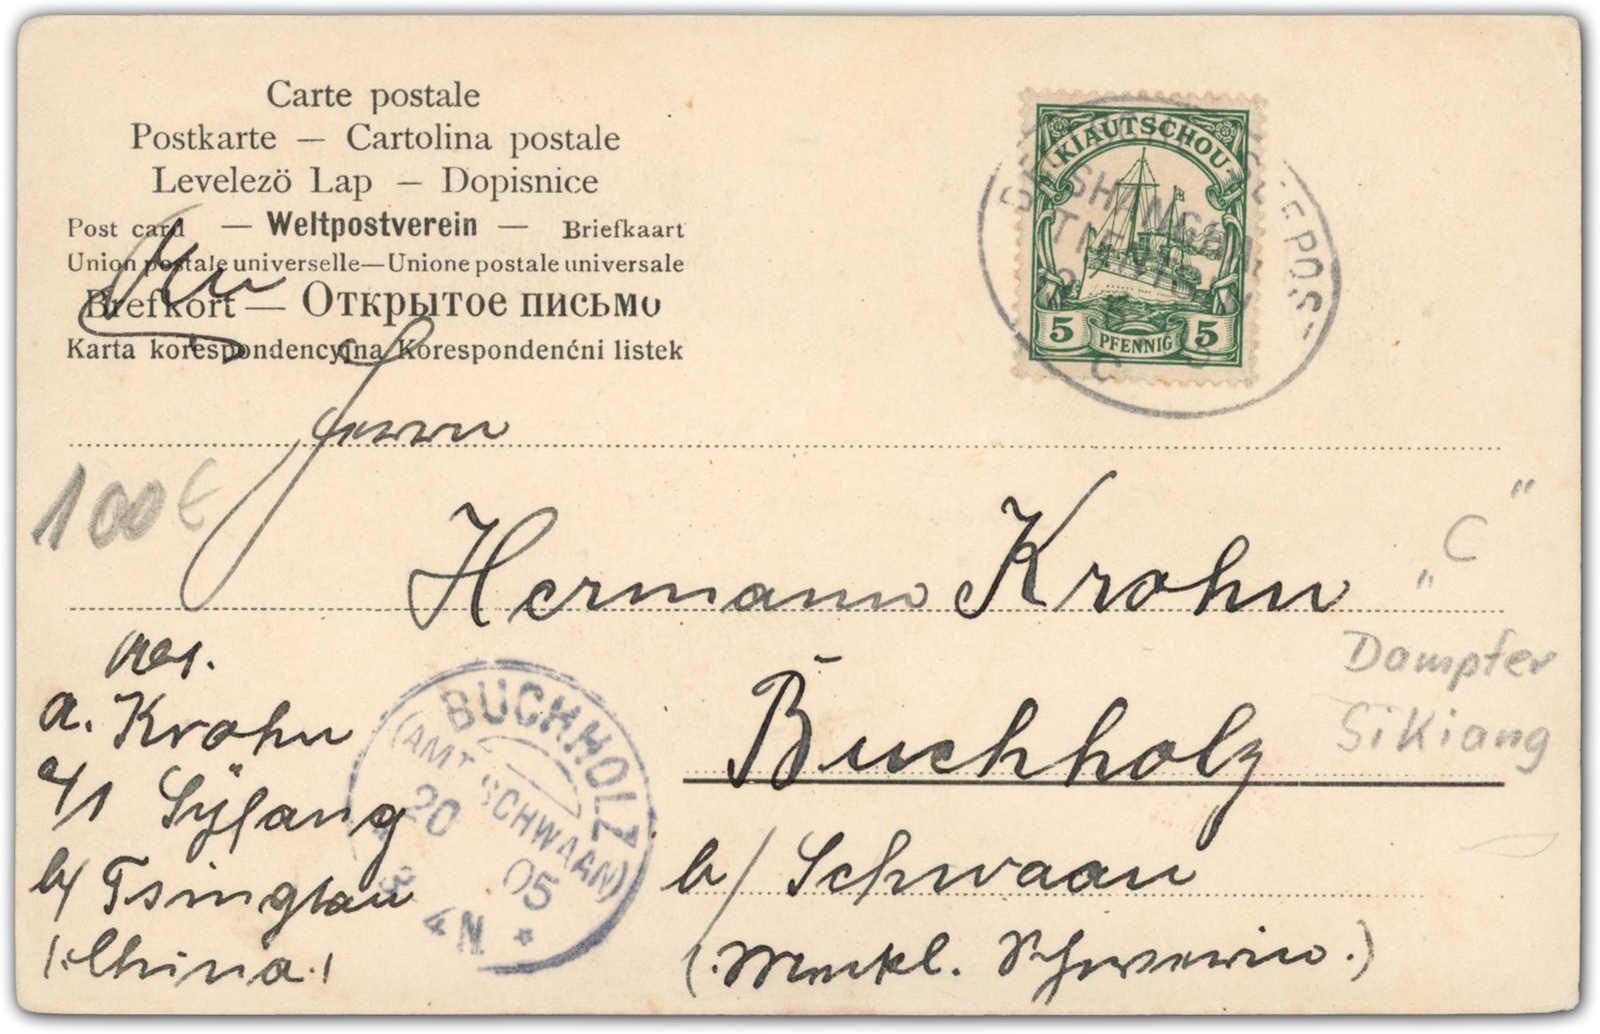 Carte postale
Postkarte — Cartolina postale
Levelezö Lap — Dopisnice
Post card — Weltpostverein — Briefkaart
Union postale universelle—Unione postale universale
Brefkort — Открытое письмо
Karta korespondencyjna Korespondenćni listek
An
KIAUTSCHOU
5 PFENNIG 5
SHANGHAI
TIENTSIN
C
Herrn
100€
Hermann Krohn
„C"
Dampfer
Sikiang
Buchholz
b/ Schwaan
(Meckl. Schwerin.)
Abs.
a. Krohn
a/1 Syfang
b/ Tsingtau
(China.)
BUCHHOLZ
(AMT SCHWAAN)
20
05
4N
*